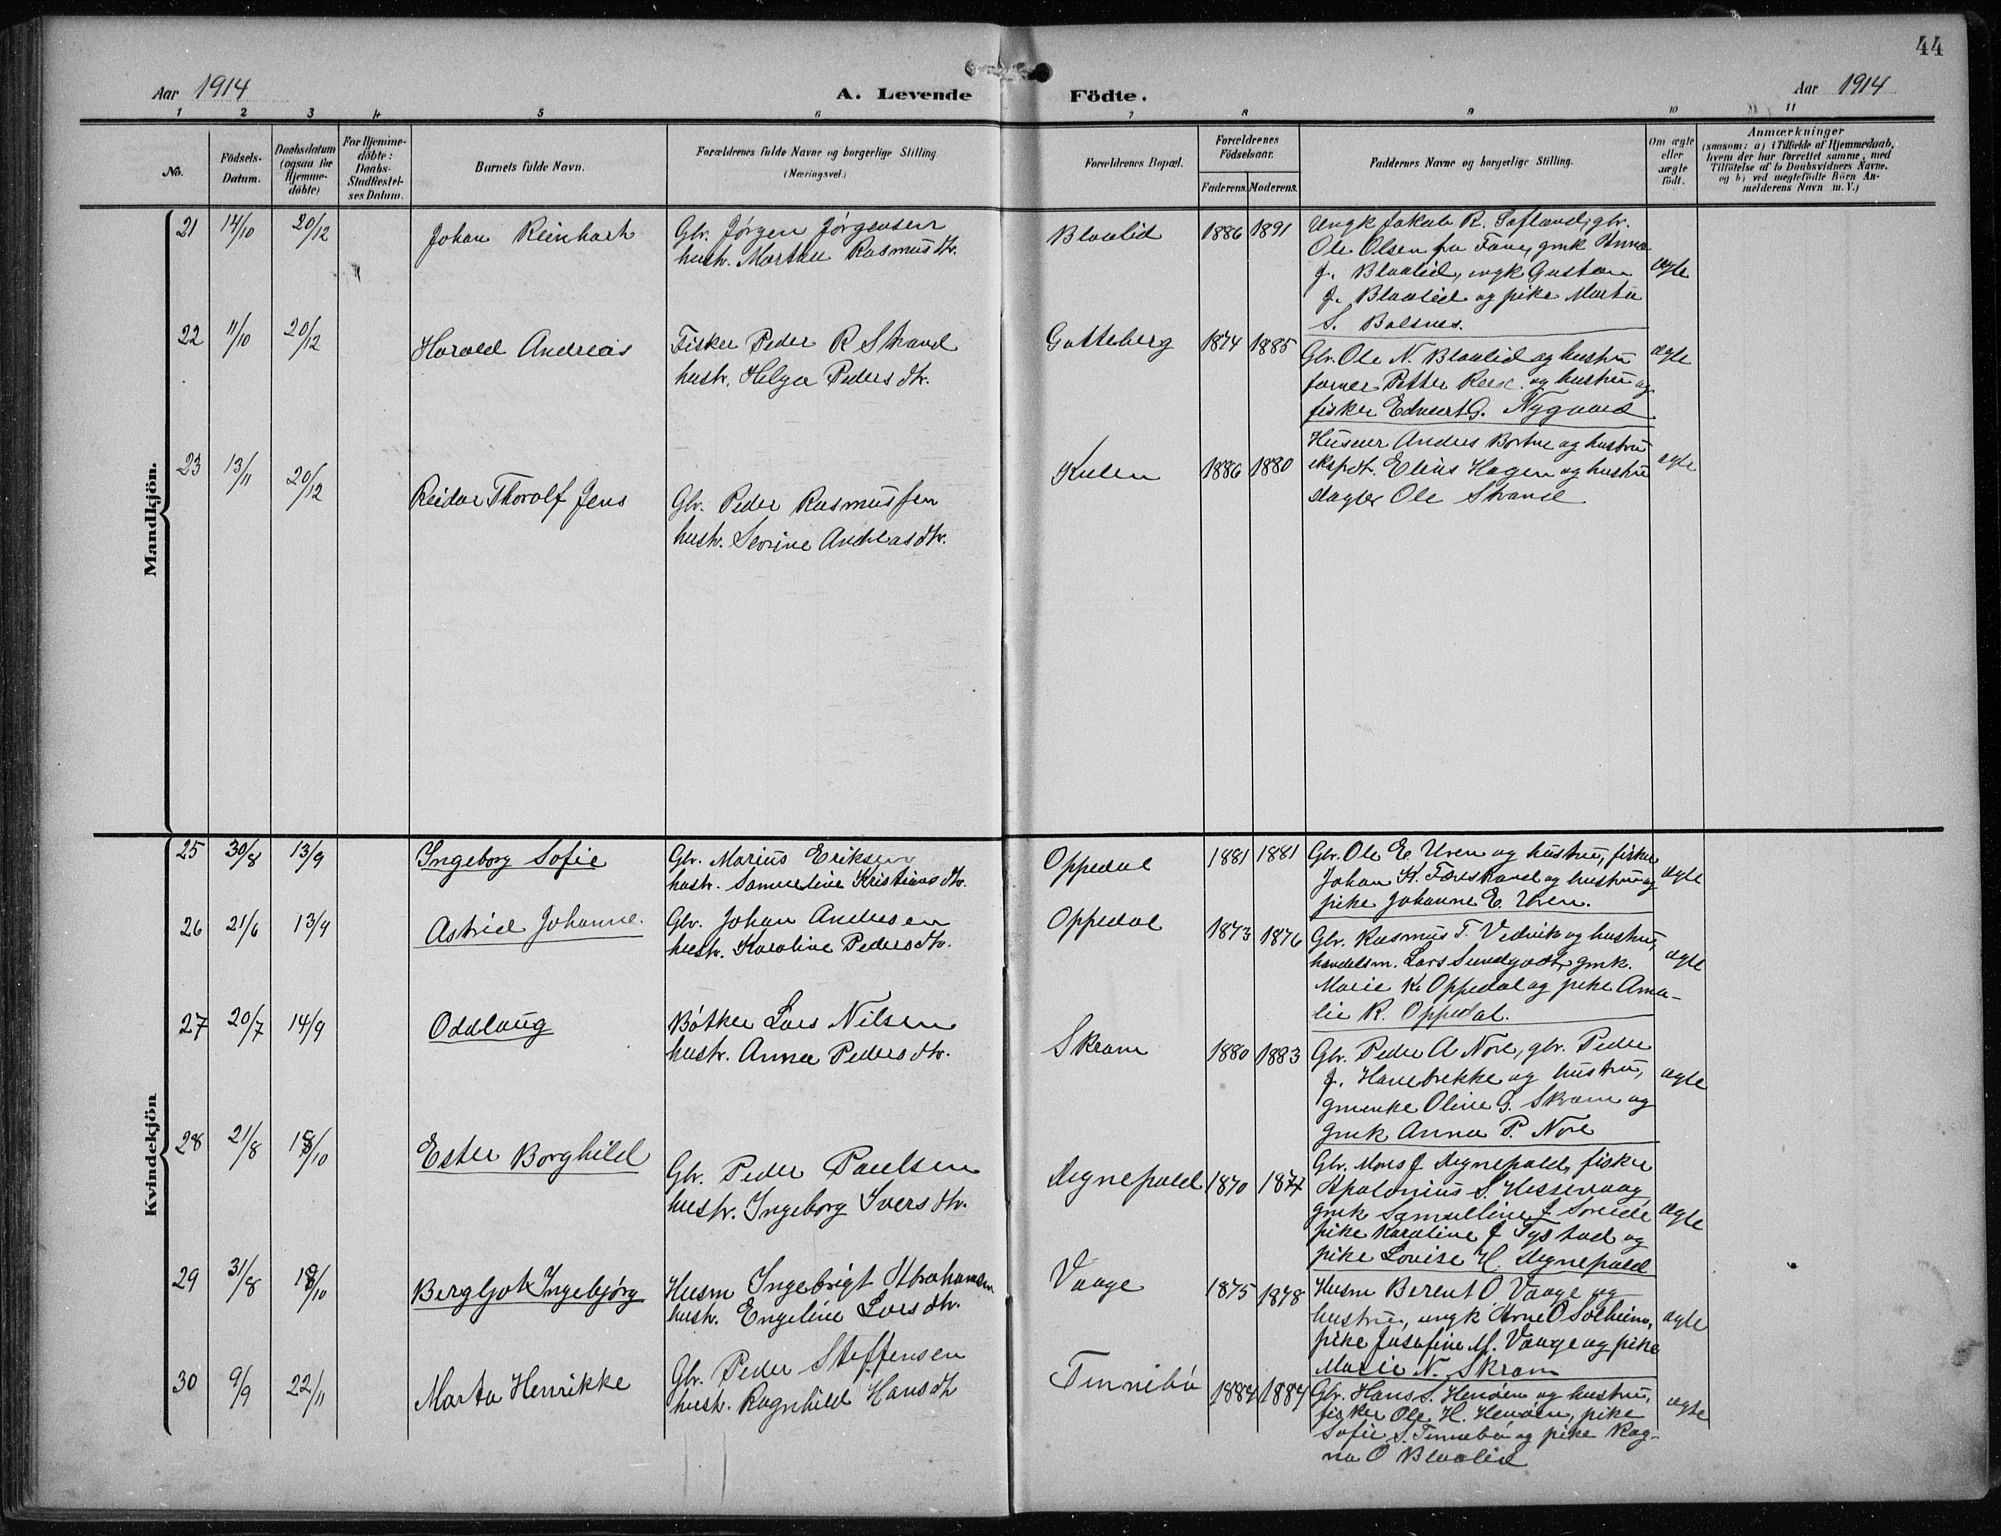 44
Aar 1914 A. Levende Födte. Aar 1914
1 2 3 4 5 6 7 8 9 10 11
No.
Födsels-
Datum.
Daabsdatum
(ogsaa for
Hjemme-
döbte)
For Hjemme-
döbte:
Daabs-
Stadfestel-
ses Datum.
Barnets fulde Navn.
Forældrenes fulde Navne og borgerlige Stilling
(Næringsvei.)
Forældrenes Bopæl.
Forældrenes
Födselsaar.
Faderens. Moderens.
Faddernes Navne og borgerlige Stilling.
Om ægte
eller
uægte
födt.
Anmærkninger
(saasom: a) i Tilfælde af Hjemmedaab,
hvem der har forrettet samme, med
Tilföielse af to Daabsvidners Navne.
og b) ved uægtefödte Börn An-
melderens Navn m. V.)
Mandkjön.
21 14/10 20/12 Johan Reinhart
Gbr. Jørgen Jørgensen
hustr. Martha Rasmusdtr.
Blaalid 1886 1891
Ungk Jakob R. Sætland, gbr.
Ole Olsen fra Fane, gmk Anna
J. Blaalid, ungk Gustav
J. Blaalid og pike Marta
S. Balsnes.
ægte
22 11/10 20/12 Harald Andreas
Fisker Peder R Strand
hustr. Helga Pedersdtr.
Gatteberg 1874 1885
Gbr. Ole N. Blaalid og hustru
former Petter Reese og hustru og
fisker Edvart G. Nygaard
ægte
23 13/11 20/12 Reidar Thoralf Jens
Gbr. Peder Rasmussen
hustr. Severine Andreasdtr.
Kulen 1886 1880
Huseier Anders Bortne og hustru
ekspdt. Elias Hagen og hustru
slagter Ole Strand
ægte
Kvindekjön
25 30/8 13/9 Ingeborg Sofie
Gbr. Marius Eriksen
hustr. Samueline Kristiansdtr.
Oppedal 1881 1881
Gbr. Ole E. Uren og hustru, fisker
Johan K. Færeskand og hustru og
pike Johanne E. Uren.
ægte
26 21/6 13/9 Astrid Johanne.
Gbr. Johan Andersen
hustr. Karoline Pedersdtr.
Oppedal 1873 1876
Gbr. Rasmus T. Vedvik og hustru,
handelsm. Lars Sundgodt, gmk.
Marie K. Oppedal og pike Ama-
lie R. Oppedal.
ægte
27 20/7 14/9 Oddlaug
Bøtker Lars Nilsen
hustr. Anna Pedersdtr.
Skram 1880 1883
Gbr. Peder A Nore, gbr. Peder
J. Hanebrekke og hustru,
gmenke Oline G. Skram og
gmk Anna P. Nore
ægte
28 21/8 18/10 Ester Borghild
Gbr. Peder Paulsen
hustr. Ingeborg Iversdtr.
Degnepold 1870 1877
Gbr. Mons J Degnepold, fisker
Apolonius S. Hessevaag,
gmk Samueline J Søreide
pike Karoline J Tystad og
pike Lovise H. Degnepold
ægte
29 31/8 18/10 Bergljot Ingebjørg
Husm Ingebrigt Abrahamsen
hustr. Engeline Larsdtr.
Vaage 1875 1878
Husm Berent O Vaage og
hustru, ungk Arne O Solheim,
pike Josefine M. Vaage og pike
Marie N. Skram
ægte
30 9/9 22/11 Marta Henrikke
Gbr. Peder Steffensen
hustr. Ragnhild Hansdtr
Tennebø 1884 1884
Gbr. Hans S. Henøen og hustru,
fisker Ole H. Henøen, pike
Sofie S. Tennebø og pike Rag-
na O Blaalid
ægte